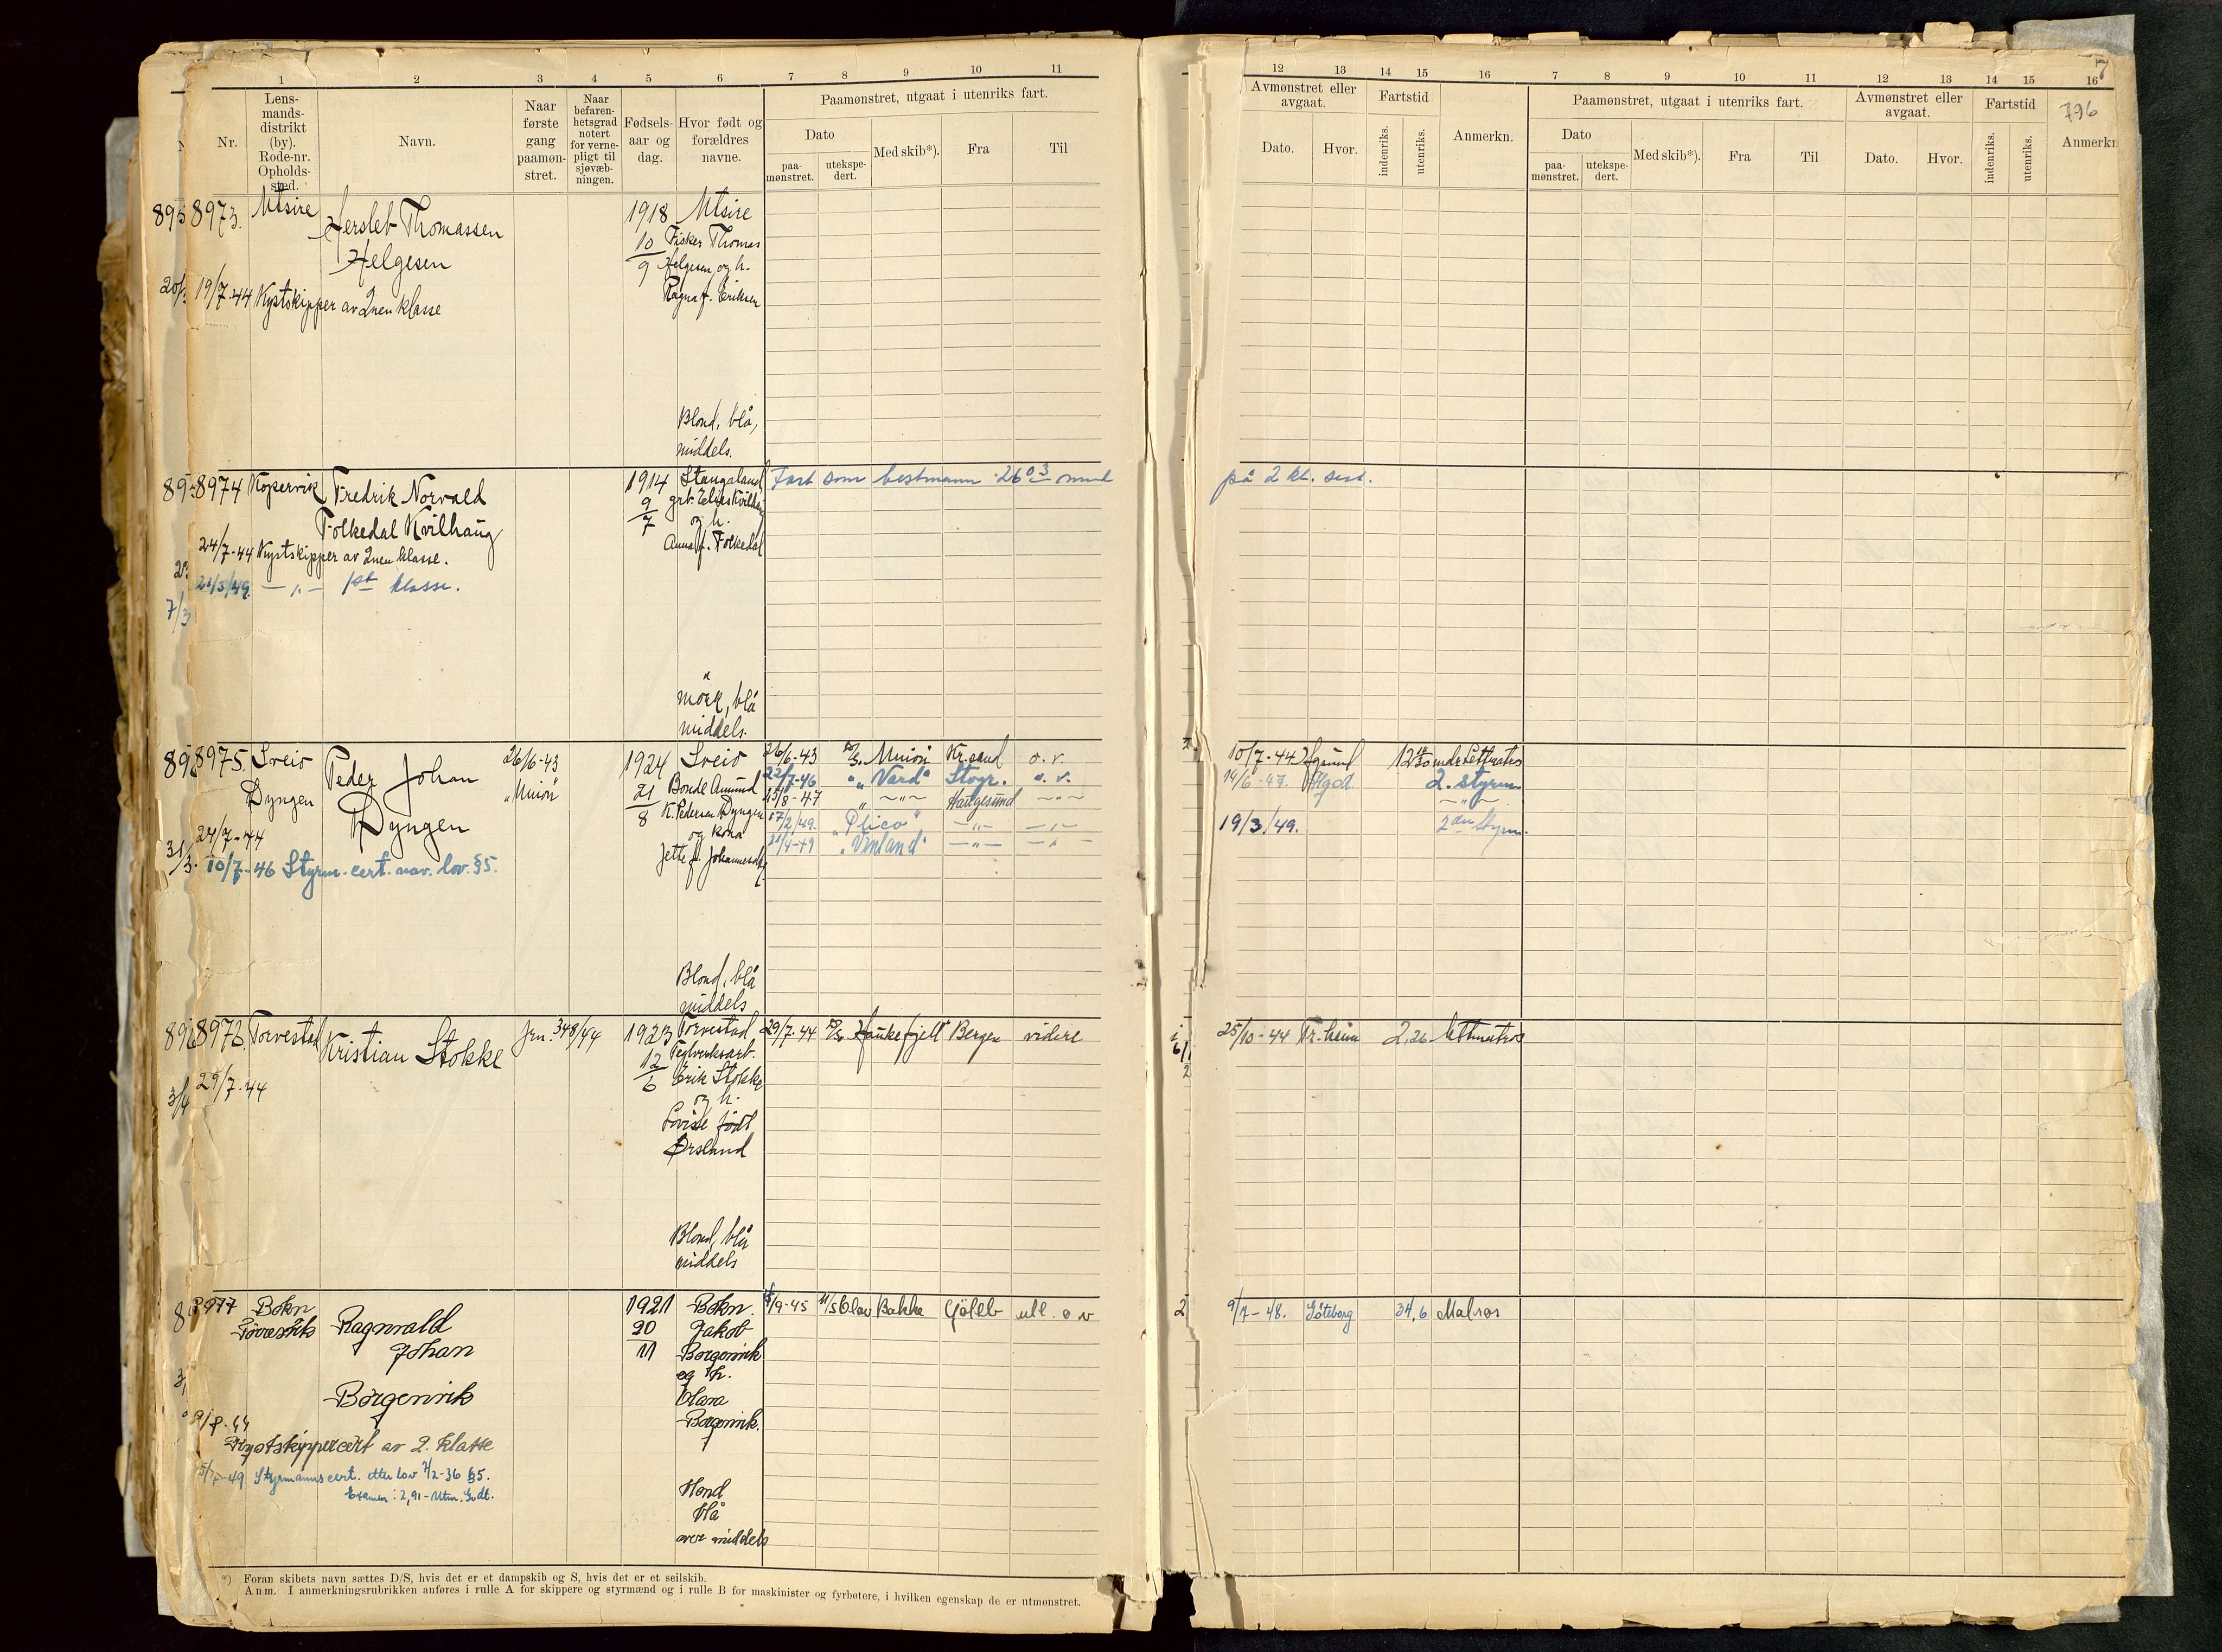 1 2 3 4 5 6 7 8 9 10 11
Nr.
Lens-
mands-
distrikt
(by).
Rode-nr.
Opholds-
sted.
Navn.
Naar
første
gang
paamøn-
stret.
Naar
befaren-
hetsgrad
notert
for verne-
pligt til
sjøvæb-
ningen.
Fødsels-
aar og
dag.
Hvor født og
forældres
navne.
Paamønstret, utgaat i utenriks fart.
Dato
paa-
mønstret.
utekspe-
dert.
Med skib*).
Fra
Til
8973. Utsire
Hersleb Thomassen
Helgesen
19/7-44 Kystskipper av 2nen klasse
1918
10/9
Utsire
Fisker Thomas
Helgesen og h.
Ragna f. Eriksen
Blond, blå,
middels.
8974 Kopervik Fredrik Norvald
Folkedal Kvilhaug
24/7-44 Kystskipper av 2nen klasse.
21/3/49. — " — 1st klasse.
7/3
1914
9/7
Stangaland
grb. Elias Kvilhaug
og h.
Anna f. Folkedal
mörk, blå
middels.
Fart som bestmann 26 03 mnd
8975. Sveio
Dyngen
Peder Johan
Dyngen
24/7-44
10/7-46 Styrm. cert. nav. lov. §5.
26/6-43
"Union"
1924
21/8
Sveio
Bonde Amund
K. Pedersen Dyngen
og kona
Jette f. Johannesdtr
Blond, blå
middels
26/6-43 D/S. Union Kr.sand o.v.
22/7-46 " "Vard" Stvgr. o.v.
15/8-47 " —"— Haugesund —"—
17/2/49. "Plico" —"— —"—
21/4-49 "Vinland" —"— —"—
8976. Torvestad Kristian Stokke
29/7-44
Jrn. 348/44
1923
12/6
Torvestad
Teglverksarb.
Erik Stokke
og h.
Lovise født
Ørsland
Blond, blå
middels
29/7-44 D/S Haukefjell Bergen videre
8977 Bokn
Føvresvik
Ragnvald
Johan
Borgenvik
9/8-44
Kystskippercert av 2. klasse
5/7-49 Styrmannscert. etter lov 7/2-36 §5.
Examen: 2,91 - Utm. Godt.
1921
20
11
Bokn.
Jakob
Borgenvik
og h.
Klara
Borgenvik.
Blond
blå
over middels
5/9-45 M/S Olav Bakke Göteb utl. o v
*) Foran skibets navn sættes D/S, hvis det er et dampskib og S, hvis det er et seilskib.
Anm. I anmerkningsrubrikken anføres i rulle A for skippere og styrmænd og i rulle B for maskinister og fyrbøtere, i hvilken egenskap de er utmønstret.
12 13 14 15 16 7 8 9 10 11 12 13 14 15 16
7
796
Avmønstret eller
avgaat.
Dato.
Hvor.
Fartstid
indenriks.
utenriks.
Anmerkn.
Paamønstret, utgaat i utenriks fart.
Dato
paa-
mønstret.
utekspe-
dert.
Med skib*).
Fra
Til
Avmønstret eller
avgaat.
Dato.
Hvor.
Fartstid
indenriks.
utenriks.
Anmerkn
på 2 kl. sert.
10/7-44 Hgsund mndr Lettmatros
14/6-47. Hgsd. 2. styrm
—"—
19/3/49. 2den Styrm.
25/10-44 Tr.heim 2,26 lettmatros
9/7-48. Göteborg 34,6 Matros